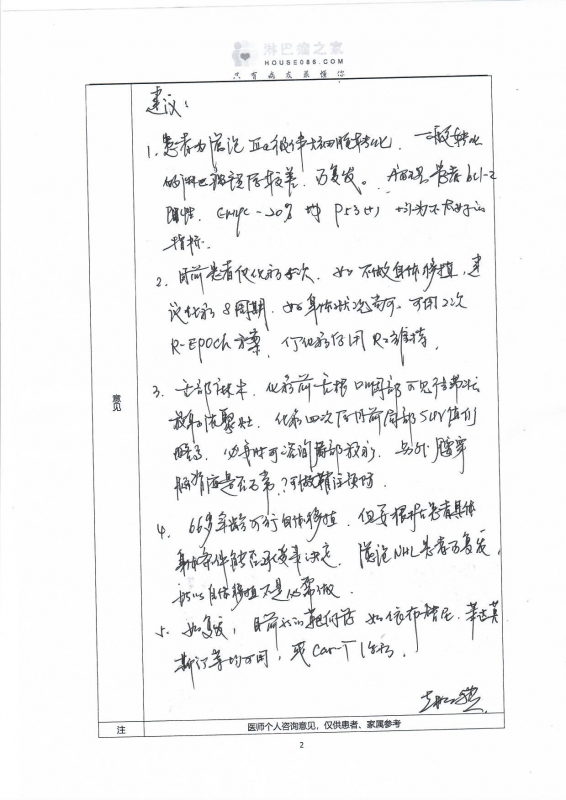 淋巴瘤之家
HOUSE086.COM
只有病友最懂你
意见
建议：
1、患者为滤泡 大细胞转化，一般转化
的淋巴瘤 较差，易复发。 患者bcl-2
阴性. Cmyc-20% P53(+) 均为不良好的
指标.
2、目前患者仅化疗4次，如不做自体移植，建
议化疗8周期，如身体状况尚可，可用2次
R-EPOCH方案，化疗后用R2维持.
3、 化疗前舌根 局部可见 带状
放射浓聚灶. 化疗四次后目前局部SUV值仍
略高. 必要时可咨询局部放疗. 另外 腰穿
是否正常？可做 预防
4、66岁年龄可行自体移植，但要根据患者具体
身体条件能否承受来决定. 滤泡NHL患者易复发，
所以自体移植不是必需做.
5、如复发，目前 靶向药 如依布替尼.
等均可用，或Car-T治疗.
注
医师个人咨询意见，仅供患者、家属参考
2